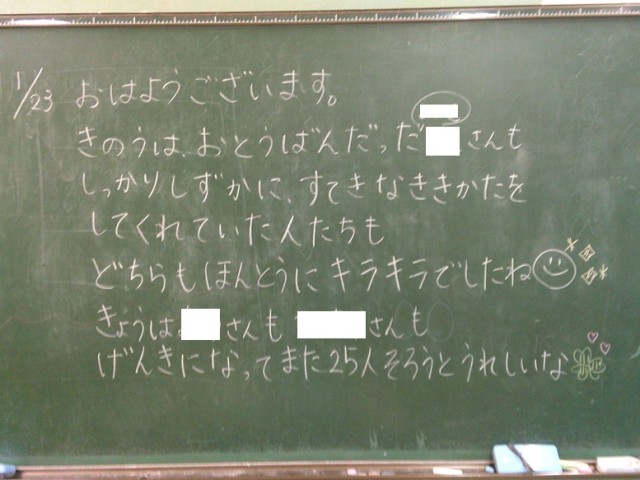 1/23 おはようございます。
きのうは、おとうばんだっださんも
しっかりしずかに、すてきなききかたを
してくれていた人たちも
どちらもほんとうにキラキラでしたね
きょうはさんもさんも
げんきになってまた25人そろうとうれしいな